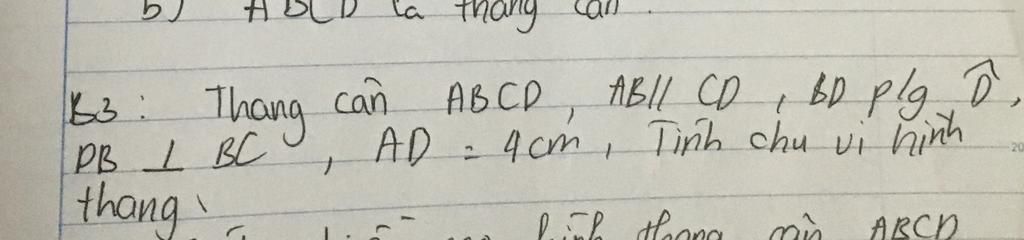 b) ABCD là thang cân.
B3: Thang cân ABCD, AB// CD, BD p/g D̂,
DB ⊥ BC, AD = 4cm, Tính chu vi hình
thang.
hình thang cân ABCD